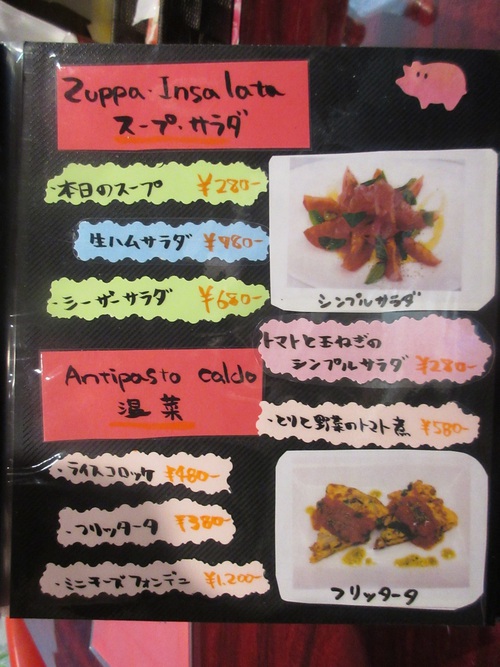 Zuppa・Insalata
スープ・サラダ
・本日のスープ ¥280-
生ハムサラダ ¥980-
・シーザーサラダ ¥680-
シンプルサラダ
トマトと玉ねぎの
シンプルサラダ ¥280-
Antipasto caldo
温菜
・とりと野菜のトマト煮 ¥580-
・ライスコロッケ ¥480-
・フリッタータ ¥380-
・ミニチーズフォンデュ ¥1,200-
フリッタータ